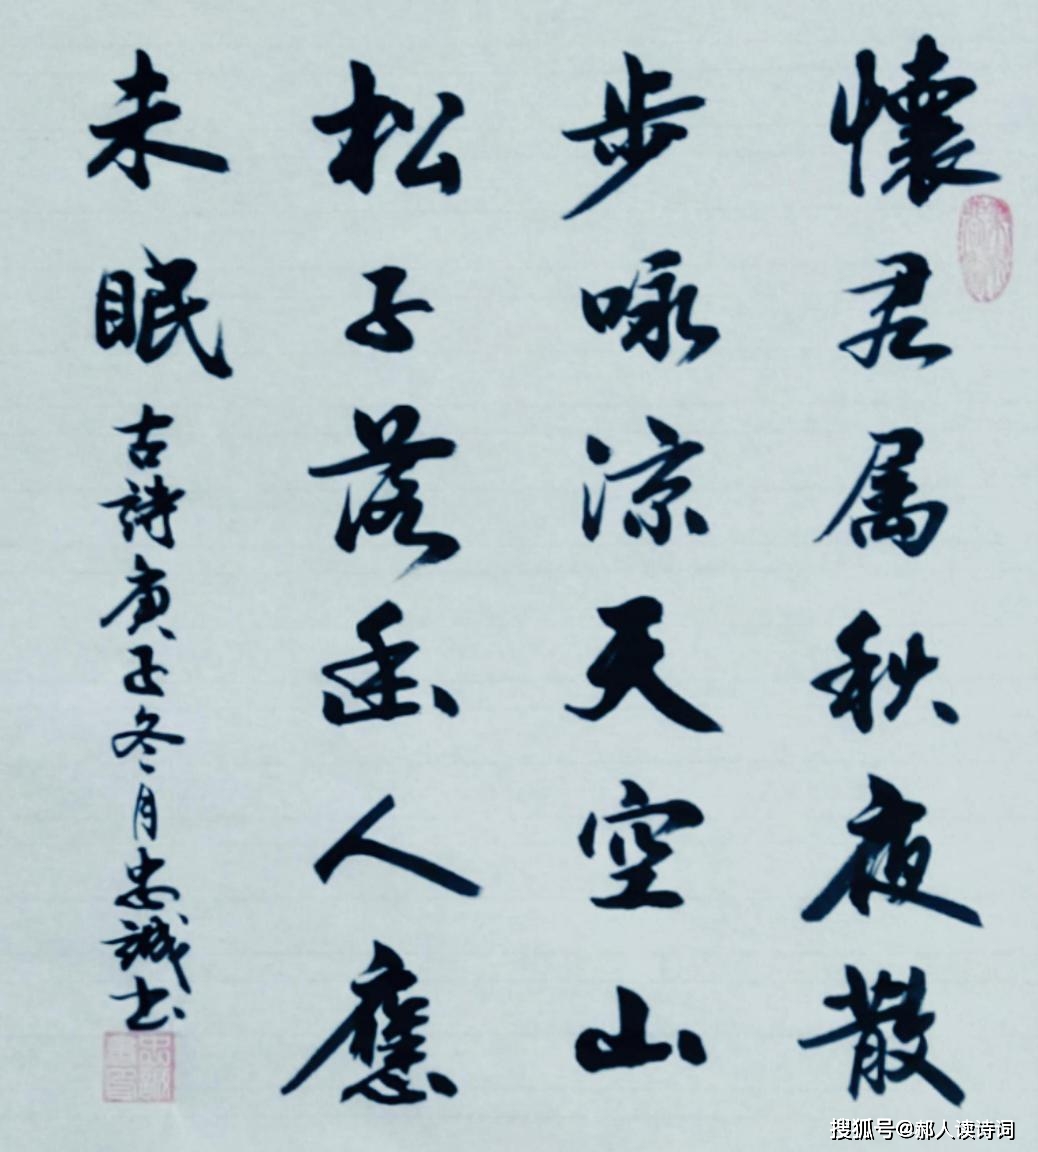 懷君属秋夜散
步咏涼天空山
松子落幽人應
未眠
古詩庚子冬月忠誠书
搜狐号@郝人读诗词